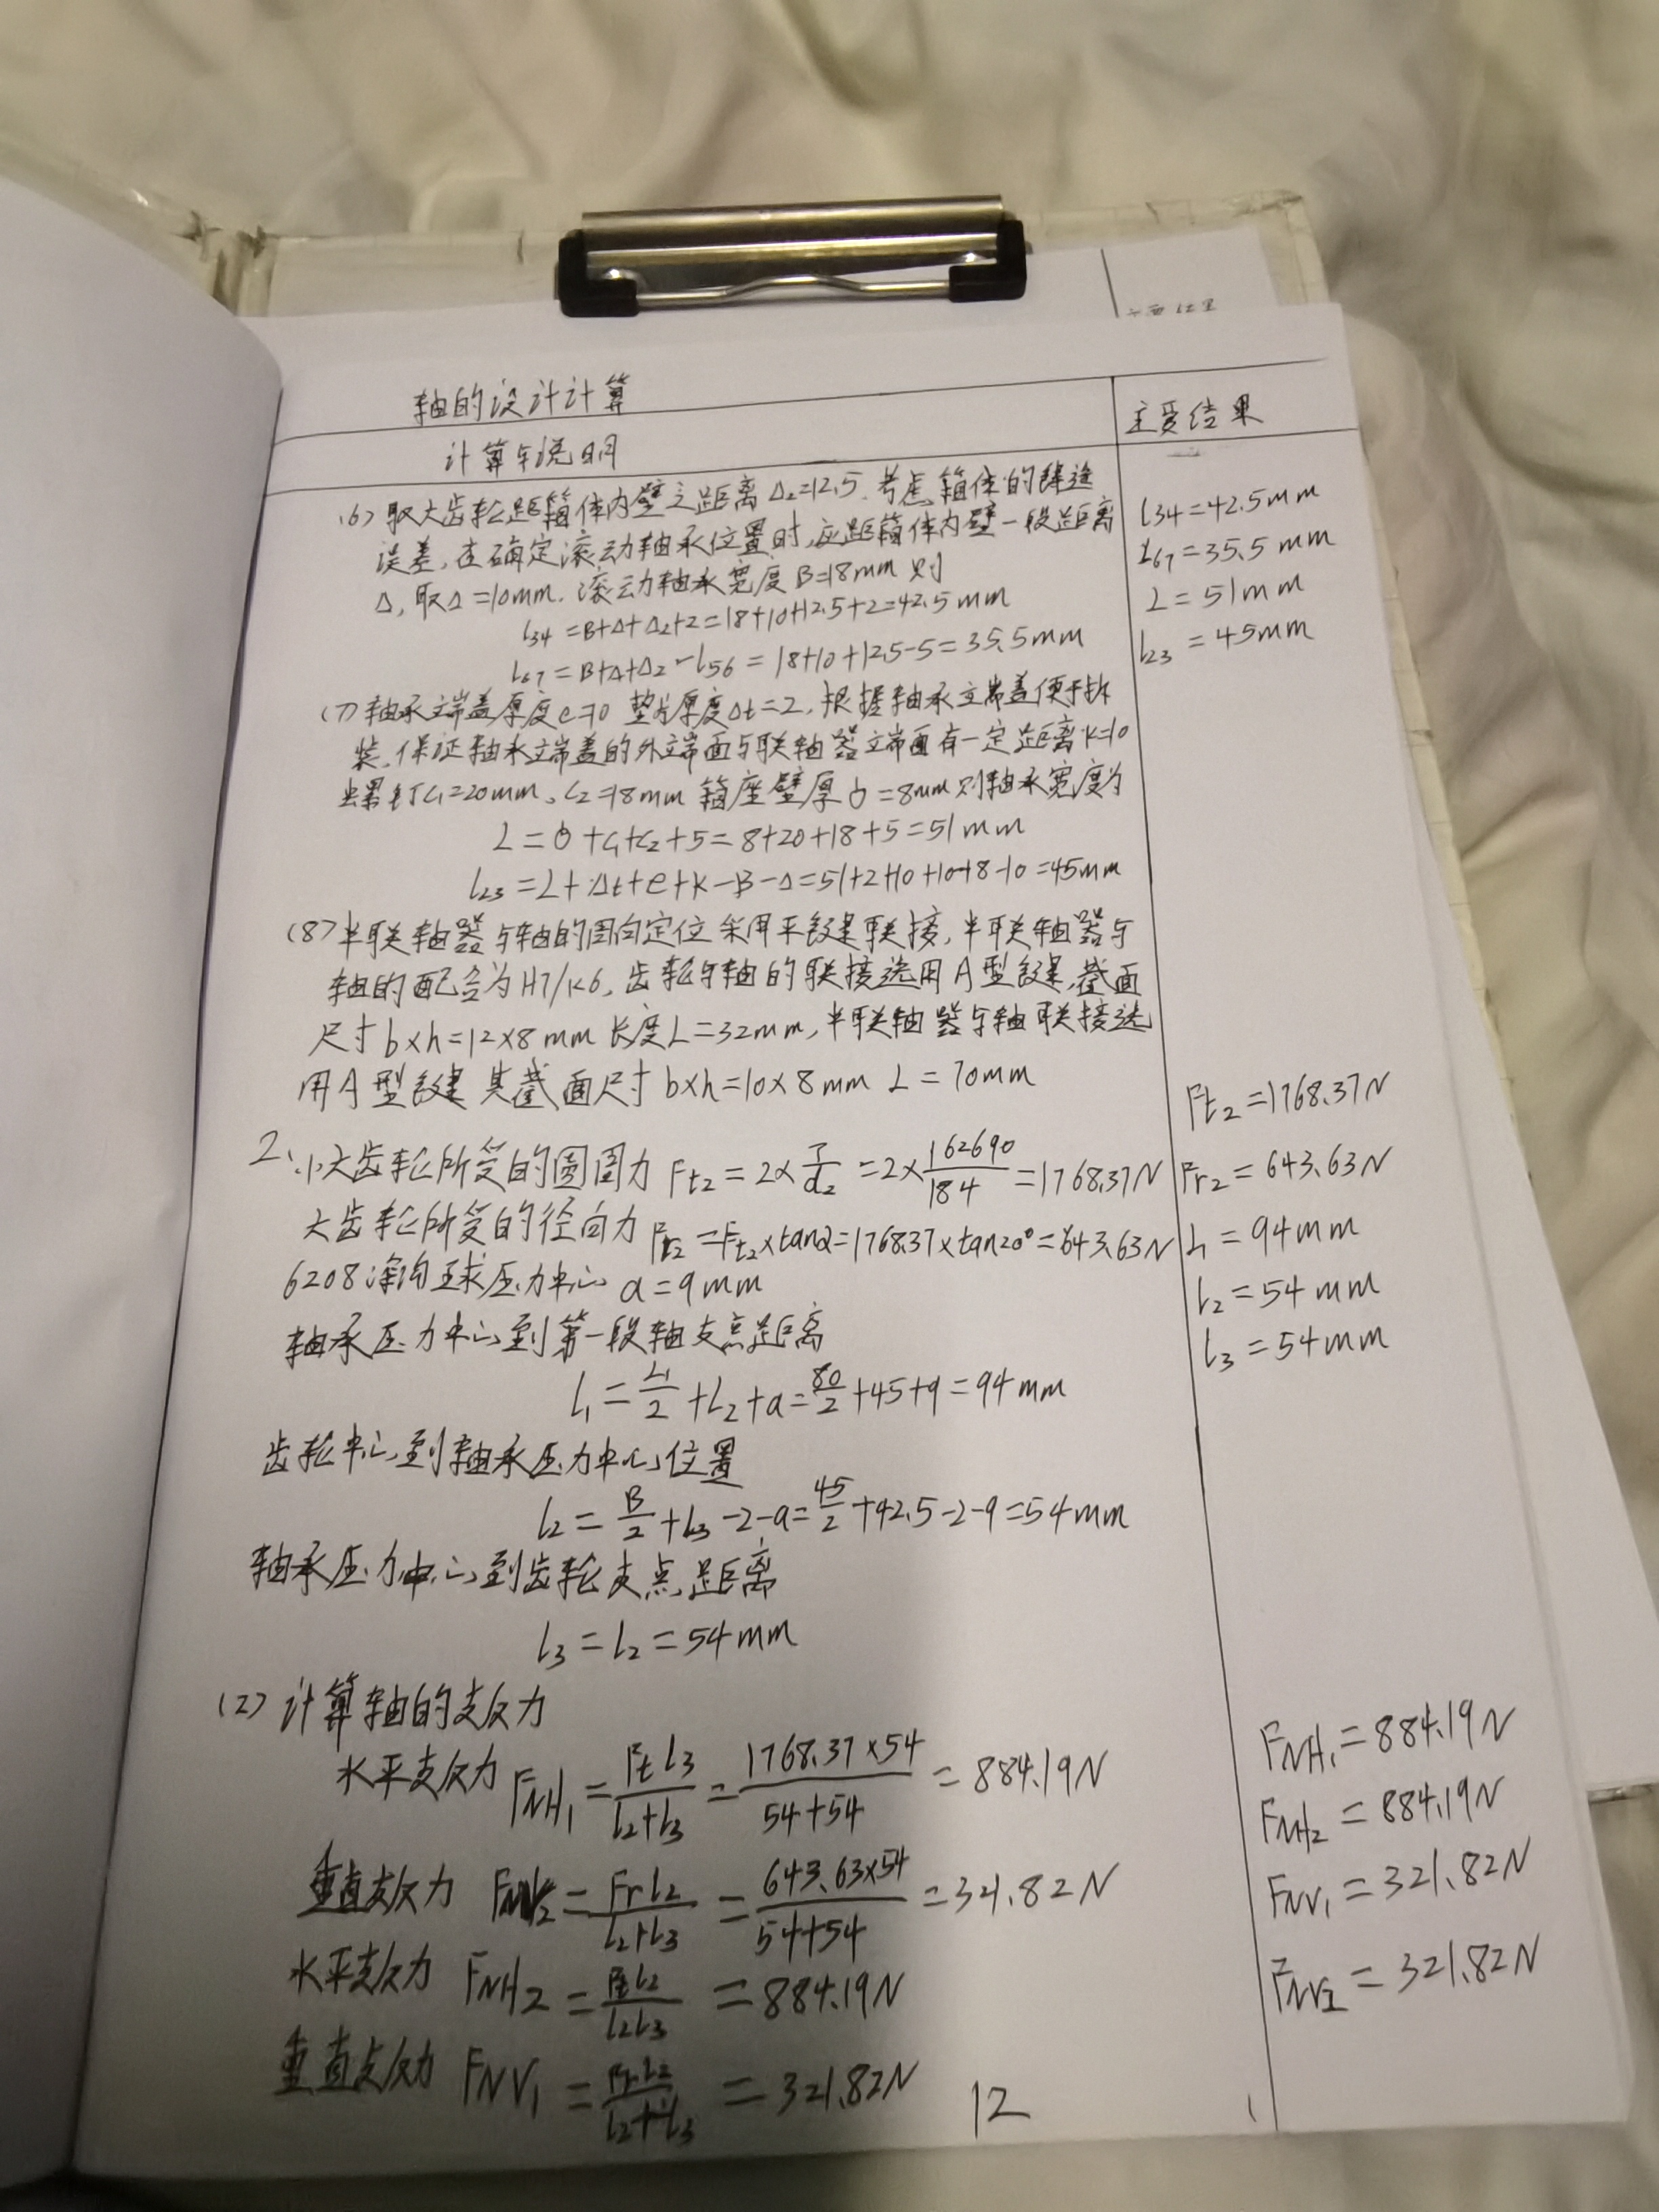 轴的设计计算
主要结果
计算与说明
(6) 取大齿轮距箱体内壁之距离 Δ2=12.5. 考虑箱体的铸造
误差, 在确定滚动轴承位置时, 应距箱体内壁一段距离
Δ, 取Δ=10mm. 滚动轴承宽度 B=18mm 则
l34 = B+Δ+Δ2+2=18+10+12.5+2=42.5mm
l67 = B+Δ+Δ2-l56 = 18+10+12.5-5=35.5mm
l34=42.5mm
l67=35.5mm
L=51mm
l23=45mm
(7) 轴承端盖厚度e=10 垫片厚度Δt=2, 根据轴承端盖便于拆
装, 保证轴承端盖的外端面与联轴器端面有一定距离K=10
螺钉C1=20mm、C2=18mm 箱座壁厚δ=8mm则轴承宽度为
L=δ+C1+C2+5=8+20+18+5=51mm
l23=L+Δt+e+K-B-Δ=51+2+10+10-18-10=45mm
(8) 半联轴器与轴的周向定位采用平键联接, 半联轴器与
轴的配合为H7/k6, 齿轮与轴的联接选用A型键, 截面
尺寸b×h=12×8mm 长度L=32mm, 半联轴器与轴联接选
用A型键 其截面尺寸b×h=10×8mm L=70mm
2、(1)大齿轮所受的圆周力 Ft2=2×T/d2=2×162690/184=1768.37N
大齿轮所受的径向力 Fr2=Ft2×tanα=1768.37×tan20°=643.63N
6208深沟球压力中心 a=9mm
轴承压力中心到第一段轴支点距离
l1=L1/2+L2+a=80/2+45+9=94mm
齿轮中心到轴承压力中心位置
l2=B/2+L3-2-a=45/2+42.5-2-9=54mm
轴承压力中心到齿轮支点距离
l3=l2=54mm
Ft2=1768.37N
Fr2=643.63N
l1=94mm
l2=54mm
l3=54mm
(2) 计算轴的支反力
水平支反力 FNH1=Ftl3/l2+l3=1768.37×54/54+54=884.19N
垂直支反力 FNV2=Frl2/l2+l3=643.63×54/54+54=321.82N
水平支反力 FNH2=Ftl2/l2l3=884.19N
垂直支反力 FNV1=Frl2/l2+l3=321.82N
FNH1=884.19N
FNH2=884.19N
FNV1=321.82N
FNV2=321.82N
12